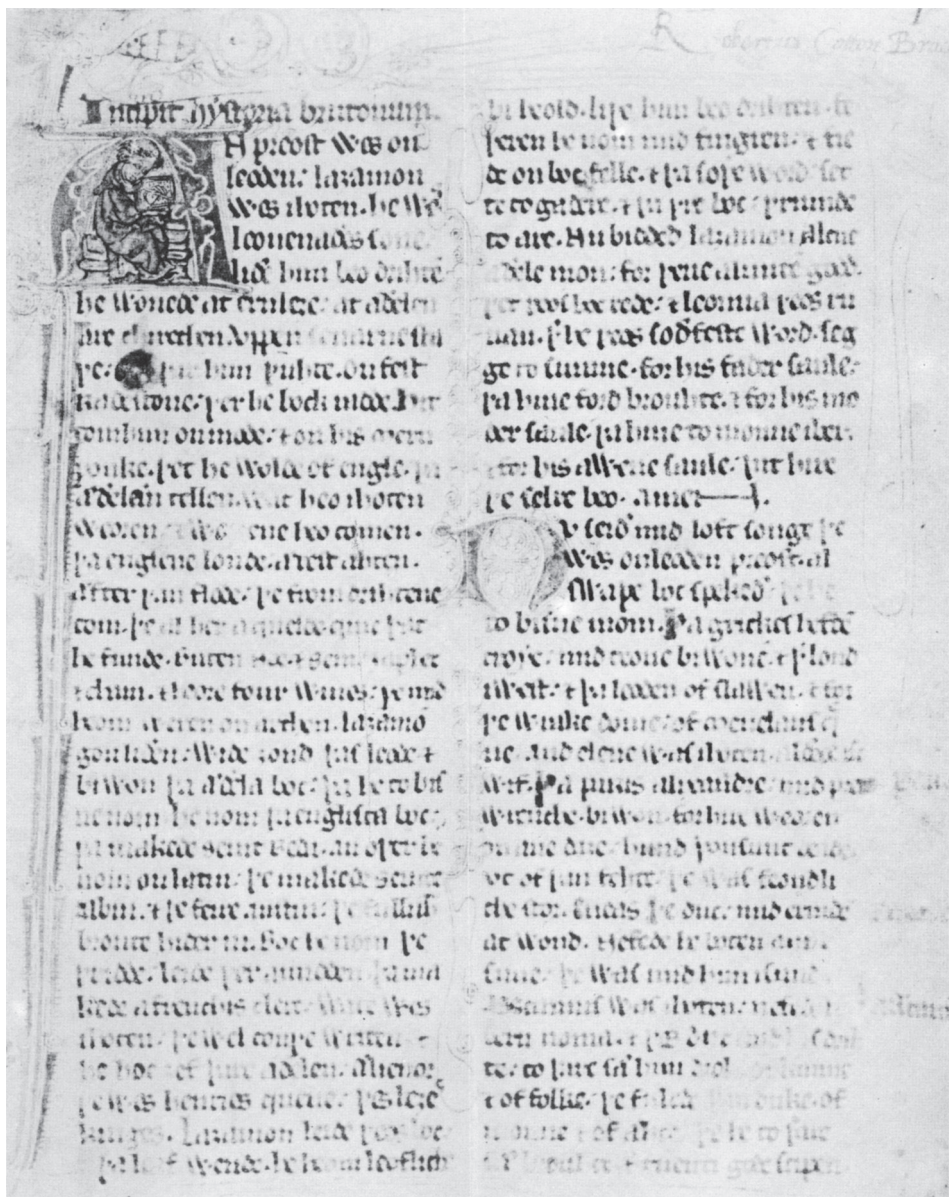 Incipit hystoria brutonum.
AN preost wes on
leoden; laȝamon
wes ihoten. he wes
leouenaðes sone;
liðe him beo drihtē
he wonede at ernleȝe; at æðelen
are chirechen. vppen seuarne sta
þe; sel þar him þuhte. on fest
Radestone; þer he bock radde. Hit
com him on mode; ⁊ on his mern
þonke. þet he wolde of engle; þa
æðelæn tellen. wat heo ihoten
weoren ⁊ wonene heo comen.
þa englene londe; ærest ahten.
æfter þan flode; þe from drihtene
com. þe al her aquelde quic þat
he funde. buten noe. ⁊ sem; iaphet
⁊ cham. ⁊ heore four wiues; þe mid
heom weren on archen. laȝamō
gon liðen; wide ȝond þas leode. ⁊
biwon þa æðela boc; þa he to bis
ne nom. he nom þa englisca boc;
þa makede seint beda. an oþer he
nom on latin; þe makede seinte
albin. ⁊ þe feire austin; þe fulluht
broute hider in. boc he nom þe
þridde; leide þer amidden. þa ma
kede a frenchis clerc; wace wes
ihoten; þe wel couþe writen. ⁊
he hoe ȝef þare æðelen; ælienor
þe wes henries quene; þes heȝes
kinges. laȝamon leide þeos boc;
⁊ þa leaf wende. he heom leofliche
bi heold. liþe him beo drihten. fe
þeren he nom mid fingren; ⁊ fie
de on boc felle. ⁊ þa soþe word; set
te to gadere. ⁊ þa þre boc; þrumde
to are. Nu biddeð laȝamon alcne
æðele mon; for þene almitē godd.
þet þeos boc rede; ⁊ leornia þeos ru
nan. þ̵ he þeos soðfeste word; seg
ge to sumne. for his fader saule;
þa hine forð brouhte. ⁊ for his mo
der saule; þa hine to monne iber.
⁊ for his awene saule; þat hire
þe selre beo. amen
NV seið mid loft songe þe
wes on leoden preost. al
swa þe boc spekeð; þe he
to bisne inom. Þa grickes hefdē
troye; mid teone biwone. ⁊ þ̵ lond
iwest; ⁊ þa leoden of slawen. ⁊ for
þe wrake dome; of menelaus q̄
ne. elene was ihoten. alðeodisc
wif. Þa paris alixandre; mid pret
wrenche biwon. for hire weoren
on ane daȝe; hund þousunt deade
vt of þan fehte; þe was feondli
che stor. eneas þe duc; mid ermðē
at wond. nefede he boten anne
sune; þe was mid him isund.
asscanius was ihoten; nefede he
bern nama. ⁊ þes duc mid his drih
te; to þare sæ him droh. of kunne
⁊ of folke; þe fulede þan duke. of
monne ⁊ of ahte; þe he to þare
sæ brouhte. ⁊ tuenti gode scipen